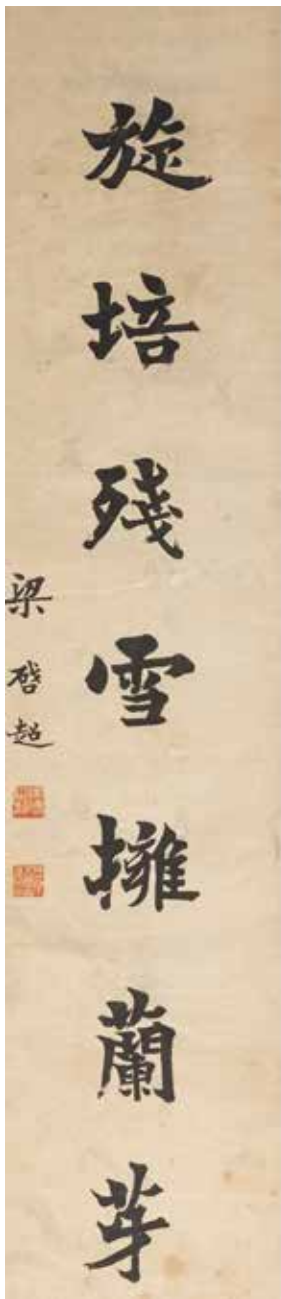 旋培殘雪擁蘭芽
梁啓超